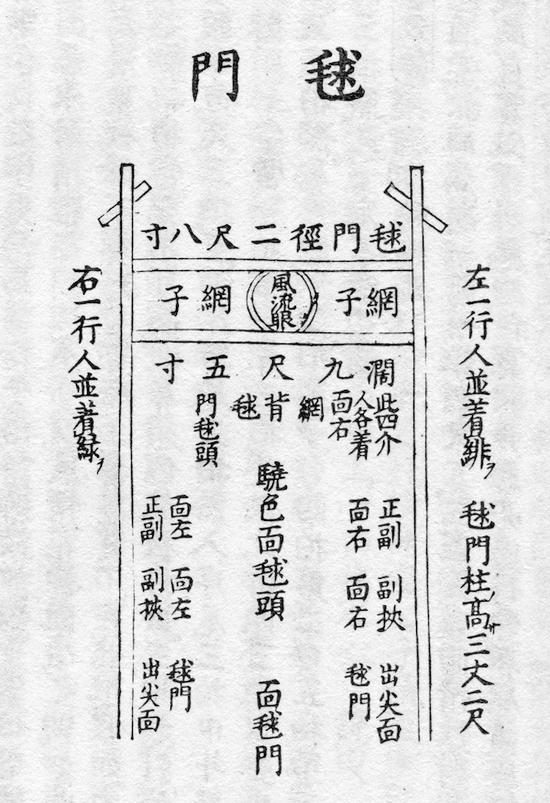 毬門
毬門徑二尺八寸
網子
風流眼
網子
濶九尺五寸
此四介
人各着
面右
網
背
毬
門毬頭
驍色面毬頭
面毬門
正副
面右
副挾
面右
出尖面
毬門
面左
正副
面左
副挾
毬門
出尖面
左一行人並着緋ヲ
毬門柱高サ三丈二尺
右一行人並着緑ヲ